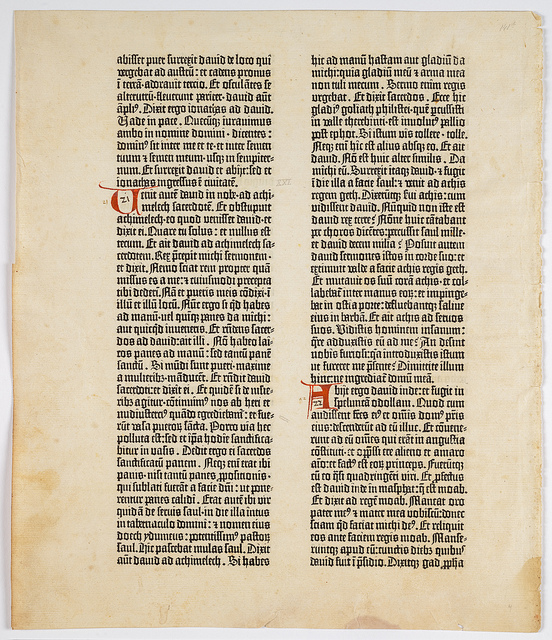 abisset puer surrexit david de loco qui
vergebat ad austrū: et cadens pronus
ī terrā·adoravit tercio. Et osculātes se
alterutrū·fleverunt pariter·david aūt
ampliꝰ. Dixit ergo ionathas ad david.
Vade in pace. Quecūq; iuravimus
ambo in nomine domini·dicentes:
dominꝰ sit inter me et te·et inter semen
tuum et semen meum·usq; in sempiter-
num. Et surrexit david et abijt:sed et
ionathas ingressus ē civitatē.
Venit autē david in nobe·ad achi-
melech sacerdotē. Et obstupuit
achimelech·eo quod venisset david·et
dixit ei. Quare tu solus: et nullus est
tecum. Et ait david ad achimelech sa-
cerdotem. Rex precepit michi sermonem·
et dixit. Nemo sciat rem propter quā
missus es a me: et cuiusmodi precepta
tibi dederī. Nā et pueris meis cōdixi·ī
illū et illū locū. Nūc ergo si qd habes
ad manū·vel quīq; panes da michi:
aut quicqd inveneris. Et rn̄dens sacer-
dos ad david:ait illi. Nō habeo lai-
cos panes ad manū: sed tantū panē
sanctū. Si mūdi sunt pueri·maxime
a mulieribꝫ·māducēt. Et rn̄dit david
sacerdoti:et dixit ei. Et quidē si de mulie-
ribꝫ agitur·cōtinuimꝰ nos ab heri et
nudiustercꝰ quādo egrediebamur: et fue-
rūt vasa pueroꝝ sācta. Porro via hec
polluta est:sed et ipa hodie sanctifica-
bitur in vasis. Dedit ergo ei sacerdos
sanctificatū panem. Neq; eni erat ibi
panis·nisi tantū panes ꝓpositionis·
qui sublati fuerāt a facie dn̄i: ut pone-
rentur panes calidi. Erat autē ibi vir
quidā de servis saul·in die illa intus
in tabernaculo domini: et nomen eius
doech ydumeus: potentissimꝰ pastoꝝ
saul. Hic pascebat mulas saul. Dixit
aūt david ad achimelech. Si habes
hic ad manū hastam aut gladiū da
michi:quia gladiū meū et arma mea
non tuli mecum. Sermo enim regis
urgebat. Et dixit sacerdos. Ecce hic
gladiꝰ goliath philistei·quē percussisti
in valle therebinti·est involutꝰ pallio
post ephot. Si istum vis tollere·tolle.
Neq; eni hic est alius absq; eo. Et ait
david. Nō est huic alter similis. Da
michi eū. Surrexit itaq; david·et fugit
ī die illa a facie saul: et venit ad achis
regem geth. Dixerūtq; servi achis:cum
vidissent david. Nūquid non iste est
david rex terre? Nōne huic cātabant
per choros dicētes:percussit saul mille·
et david decem milia? Posuit autem
david sermones istos in corde suo:et
extimuit valde a facie achis regis geth.
Et mutavit os suū corā achis·et col-
labebatur inter manus eorū:et impinge-
bat in ostia porte:defluebantq; salive
eius in barbā. Et ait achis ad servos
suos. Vidistis hominem insanum:
qre adduxistis eū ad me? An desunt
nobis furiosi:qa introduxistis istum
ut fureret me presente? Dimittite illum
hinc:ne ingrediatur domū meā.
Abijt ergo david inde:et fugit in
speluncā odollam. Quod cum
audissent fratres eiꝰ et omnis domꝰ pris
eius:descenderūt ad eū illuc. Et cōvene-
runt ad eū omnes qui erāt in angustia
cōstituti·et oppressi ere alieno et amaro
aīo:et factꝰ est eorū princeps. Fuerūtq;
cū eo qsi quadringēti viri. Et profectus
est david inde in masphat:que est moab.
Et dixit ad regē moab. Maneat oro
pater meꝰ et mater mea vobiscū:donec
sciam qd faciat michi deꝰ. Et reliquit
eos ante faciem regis moab. Manse-
runtq; apud eū:cunctis diebꝫ quibus
david fuit ī presidio. Dixitq; gad ꝓpha